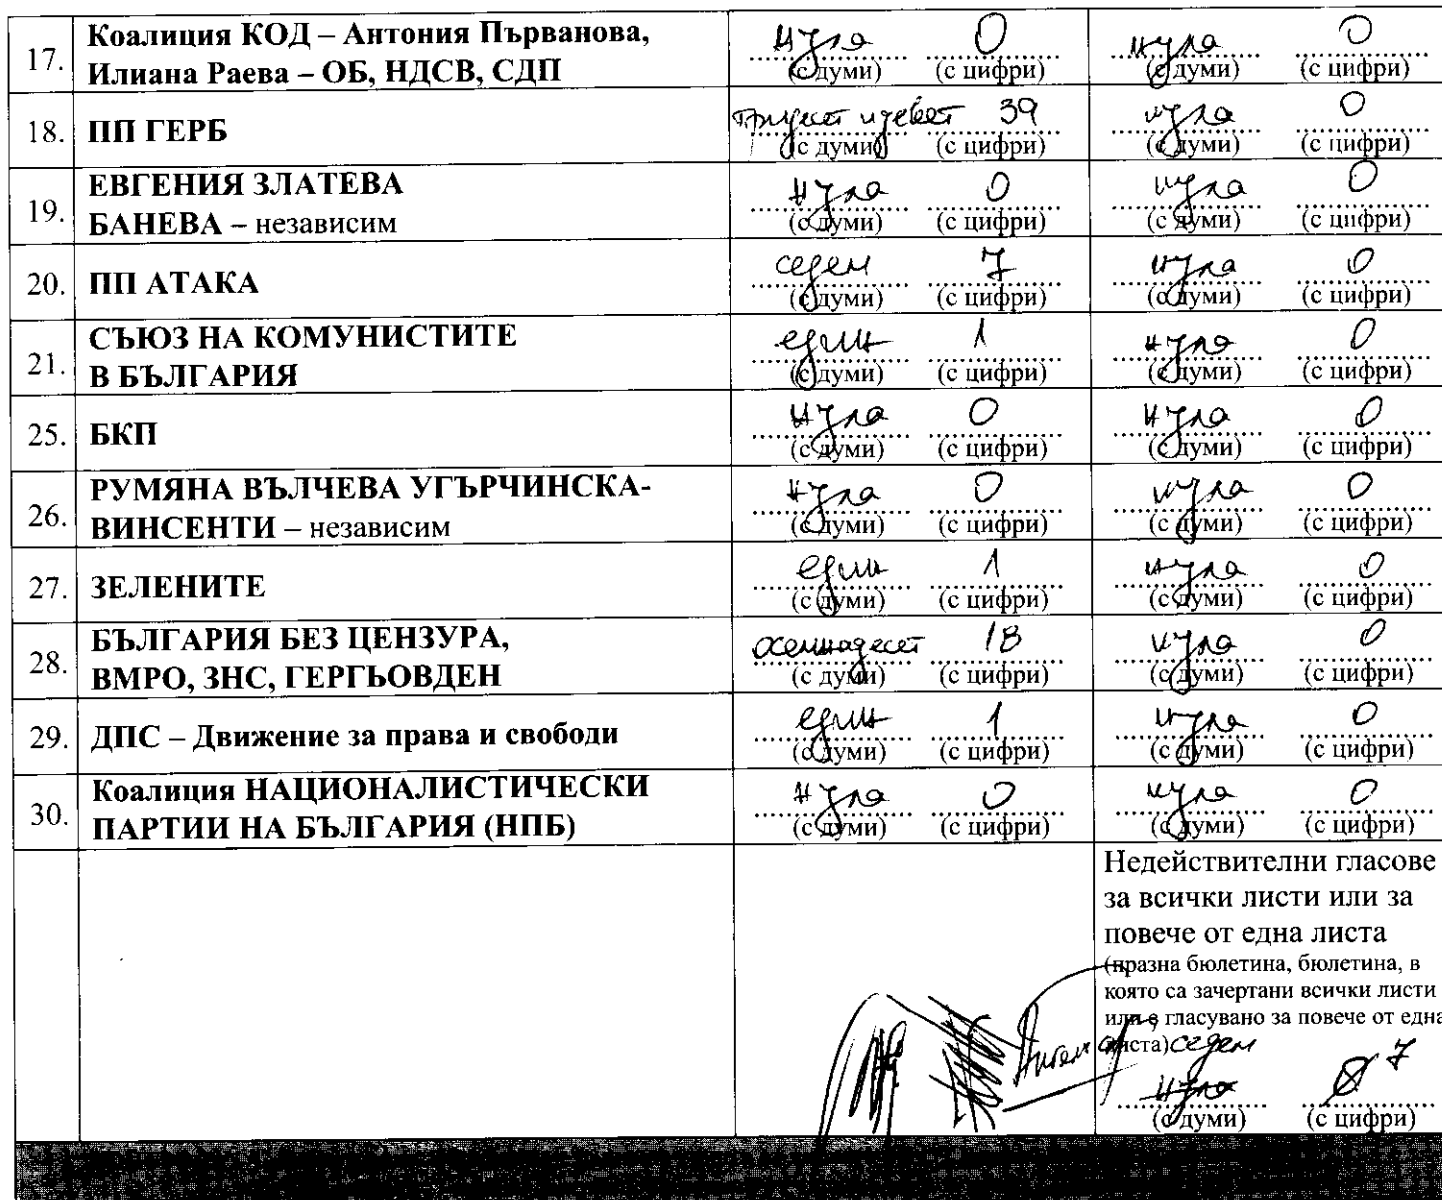 17. Коалиция КОД – Антония Първанова, Илиана Раева – ОБ, НДСВ, СДП
нула 0 нула 0
(с думи) (с цифри) (с думи) (с цифри)
18. ПП ГЕРБ
тридесет и девет 39 нула 0
(с думи) (с цифри) (с думи) (с цифри)
19. ЕВГЕНИЯ ЗЛАТЕВА
БАНЕВА – независим
нула 0 нула 0
(с думи) (с цифри) (с думи) (с цифри)
20. ПП АТАКА
седем 7 нула 0
(с думи) (с цифри) (с думи) (с цифри)
21. СЪЮЗ НА КОМУНИСТИТЕ
В БЪЛГАРИЯ
един 1 нула 0
(с думи) (с цифри) (с думи) (с цифри)
25. БКП
нула 0 нула 0
(с думи) (с цифри) (с думи) (с цифри)
26. РУМЯНА ВЪЛЧЕВА УГЪРЧИНСКА-
ВИНСЕНТИ – независим
нула 0 нула 0
(с думи) (с цифри) (с думи) (с цифри)
27. ЗЕЛЕНИТЕ
един 1 нула 0
(с думи) (с цифри) (с думи) (с цифри)
28. БЪЛГАРИЯ БЕЗ ЦЕНЗУРА,
ВМРО, ЗНС, ГЕРГЬОВДЕН
осемнадесет 18 нула 0
(с думи) (с цифри) (с думи) (с цифри)
29. ДПС – Движение за права и свободи
един 1 нула 0
(с думи) (с цифри) (с думи) (с цифри)
30. Коалиция НАЦИОНАЛИСТИЧЕСКИ
ПАРТИИ НА БЪЛГАРИЯ (НПБ)
нула 0 нула 0
(с думи) (с цифри) (с думи) (с цифри)
Недействителни гласове
за всички листи или за
повече от една листа
(празна бюлетина, бюлетина, в
която са зачертани всички листи
или е гласувано за повече от една
листа) седем
нула 0 7
(с думи) (с цифри)